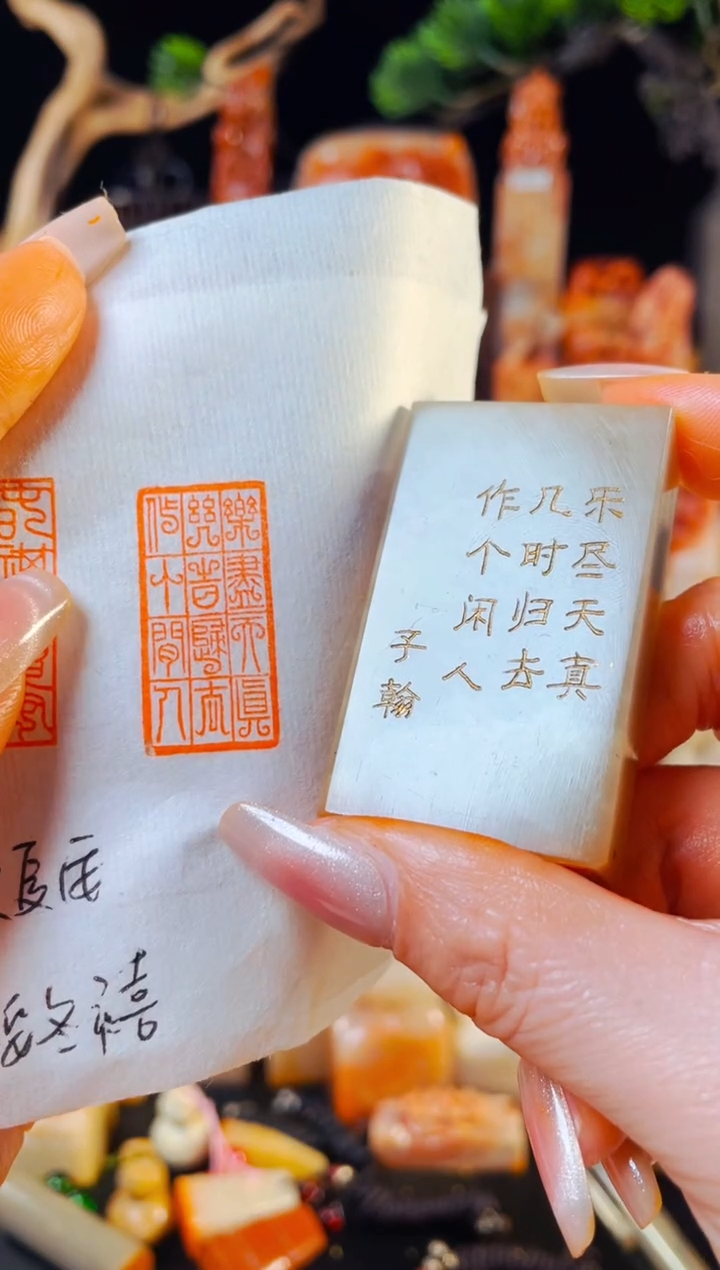 樂盡天眞
幾旹歸去
作个閒人
乐尽天真
几时归去
作个闲人
子翰
禧